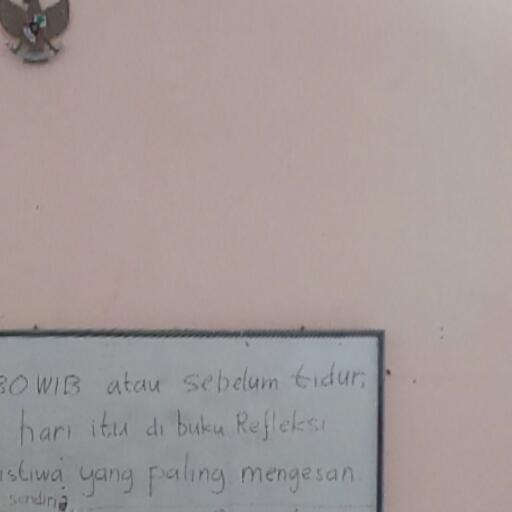 30 WIB atau sebelum tidur,
hari itu di buku Refleksi
istiwa yang paling mengesan
sendiria